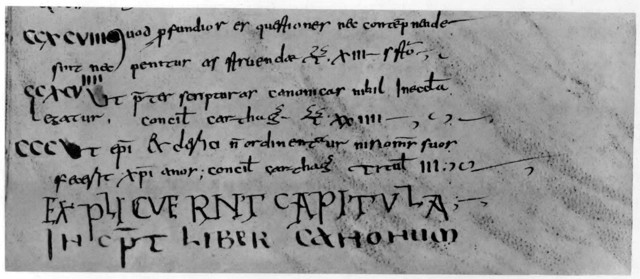 CCXCVIII Quod pfundiores questiones nec contēpnende
sint nec penitus astruendæ XIII
CCXCVIIII Ut p̄ter scripturas canonicas nihil Ineccła
Legatur, concil carthag XXIIII
CCC Ut ep̄i & n̄ ordinentur nisi om̄s suos
fecerit xp̄ianos; concil carthag Titul III
EXPLICVERNT CAPITVLA
INCP̄T LIBER CANONUM